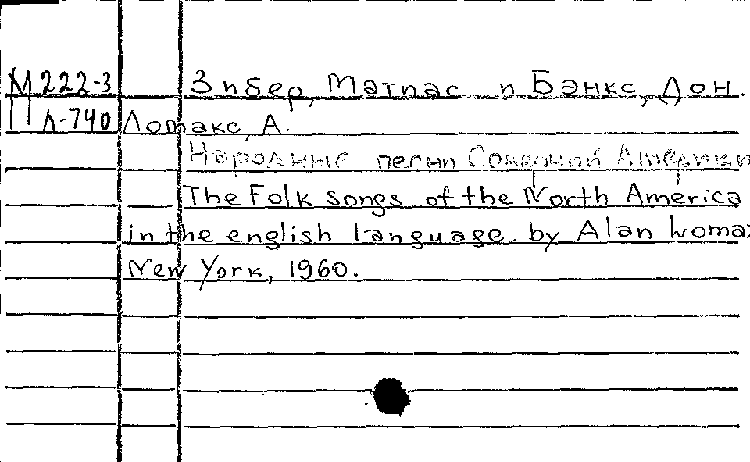 М 222-3 Зибер, Матиас и Бэнкс, Дон.
Л-740 Ломакс, А.
Народные песни Северной Америки
The Folk songs of the North America
in the english language by Alan Lomax
New York, 1960.